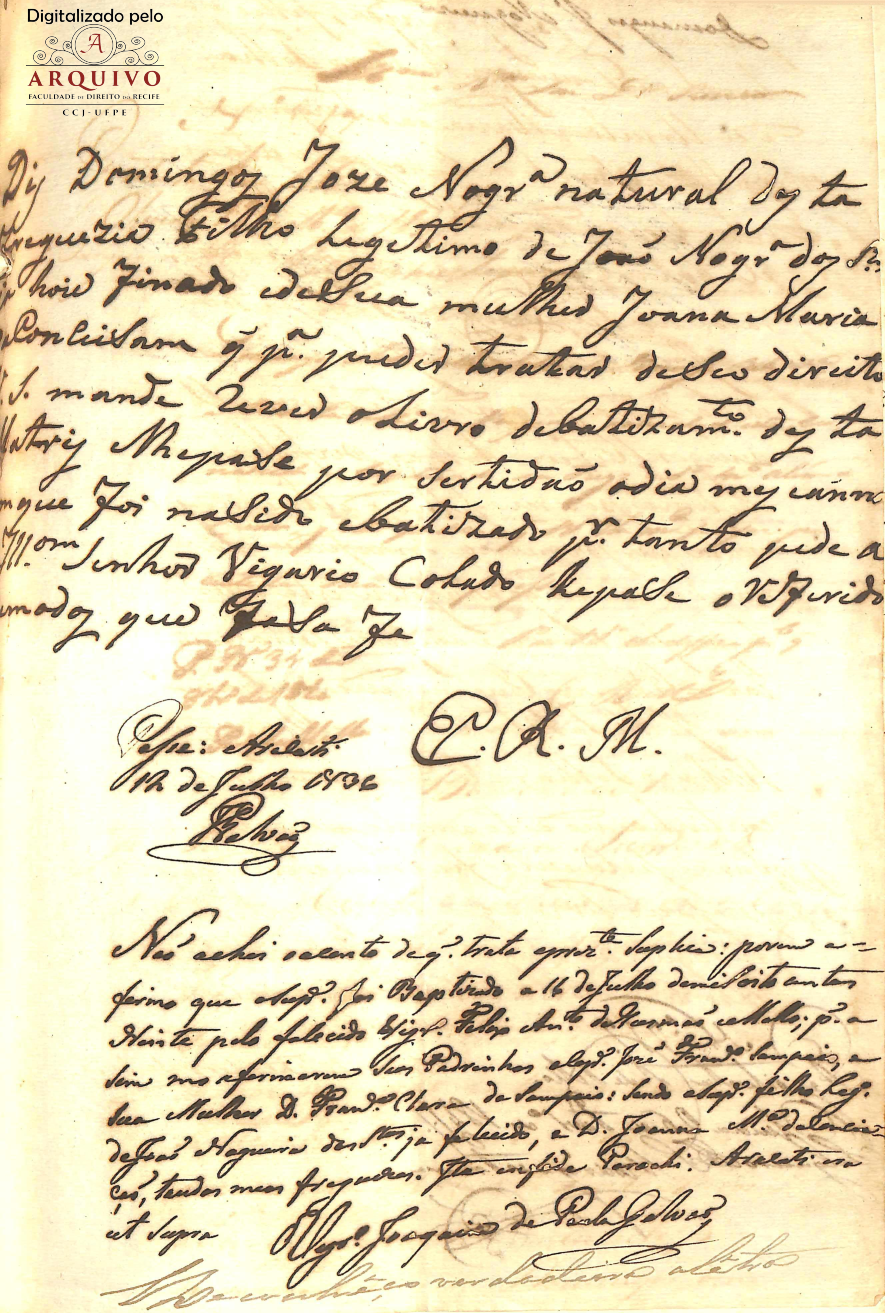 Digitalizado pelo
A
ARQUIVO
FACULDADE DE DIREITO DO RECIFE
CCJ-UFPE
Diz Domingoz Joze Nogrª natural dezta
Freguezia Filho legetimo de Joaõ Nogrª doz Stos
hoie Finado edeSua mulher Joana Maria
da ConceiSam q̃ pª. puder tratar deSeo direito
S. mande rever oLivro debatizamto. dezta
Matriz lhepaSe por sertidaõ odia mezeanno
emque Foi naSido ebatizado pr. tanto pede a
Illmo. Senhor Vigario Colado lhepaSe oreferido
emodoz que FaSa Fe
E. R. M.
Passe: Aracati
12 de Julho 1836
Galvaõ
Naõ achei oacento de q'. trata aprezte. Suplica: porem a=
firmo que oSupe. foi Baptizado a 16 de Julho demilSoito centos
Vinte pelo falecido Vigrº. Felis Anto. de e Mello; pr. a
sim mo afirmarem Seos Padrinhos oCapm. José Frando. Sampaio, e
Sua Mulher D. Franca. Clara de Sampaio: Sendo oSupe. filho Leg.
deJoaõ Nogueira dosStos. já falecido, e D. Joanna Mª. daConcei=
çaõ, todos meos freguezes. Ita in fide Parochi. Aracati era
ut supra
O Vigrº. Joaquim de Paula Galvaõ
Reconheço verdadeira aletra